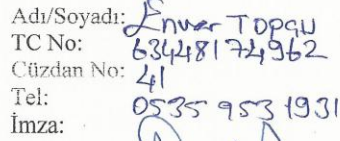 Adı/Soyadı: Enver TOPGU
TC No: 63448174962
Cüzdan No: 41
Tel: 0535 953 1931
İmza: